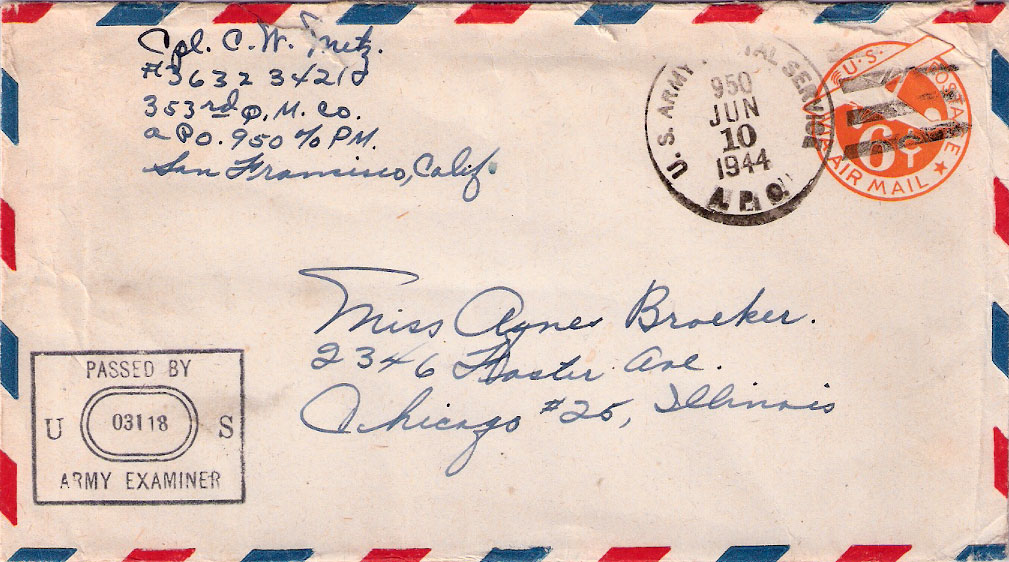 Cpl. C. W. Metz.
353rd Q. M. Co.
A P O. 950 % PM.
San Francisco, Calif.
U. S. ARMY POSTAL SERVICE
950
JUN
10
1944
A. P. O.
U.S. POSTAGE
6¢
VIA AIR MAIL
Miss Agnes Broeker.
2346 Foster Ave.
Chicago #25, Illinois
PASSED BY
U 03118 S
ARMY EXAMINER